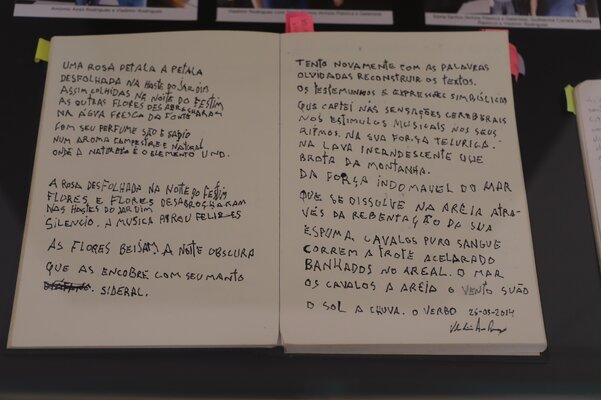 António Assis Rodrigues e Vladimir Rodrigues
UMA ROSA PETALA A PETALA
DESFOLHADA NA HOSTE DO JARDIM
ASSIM COLHIDAS NA NOITE DO FESTIM
AS OUTRAS FLORES DESABROCHARAM
NA AGUA FRESCA DA FONTE
COM SEU PERFUME SÃO E SADIO
NUM AROMA CAMPESTRE E NATURAL
ONDE A NATUREZA É O ELEMENTO UNO.
A ROSA DESFOLHADA NA NOITE DO FESTIM
FLORES E FLORES DESABROCHARAM
NAS HOSTES DO JARDIM
SILENCIO. A MUSICA PAROU
AS FLORES BEIJAM A NOITE OBSCURA
QUE AS ENCOBRE COM SEU MANTO
SIDERAL.
TENTO NOVAMENTE COM AS PALAVRAS
OLVIDADAS RECONSTRUIR OS TEXTOS.
OS TESTEMINHOS E EXPRESSÃO SIMBÓLICA
QUE CAPTEI NAS SENSAÇÕES CEREBRAIS
NOS ESTIMULOS MUSICAIS NOS SEUS
RITMOS. NA SUA FORÇA TELURICA.
NA LAVA INCANDESCENTE QUE
BROTA DA MONTANHA.
DA FORÇA INDOMAVEL DO MAR
QUE SE DISSOLVE NA AREIA ATRA-
VÉS DA REBENTAÇÃO DA SUA
ESPUMA. CAVALOS PURO SANGUE
CORREM A TROTE ACELARADO
BANHADOS NO AREAL. O MAR
OS CAVALOS A AREIA O VENTO SUÃO
O SOL A CHUVA. O VERBO 26-05-2014